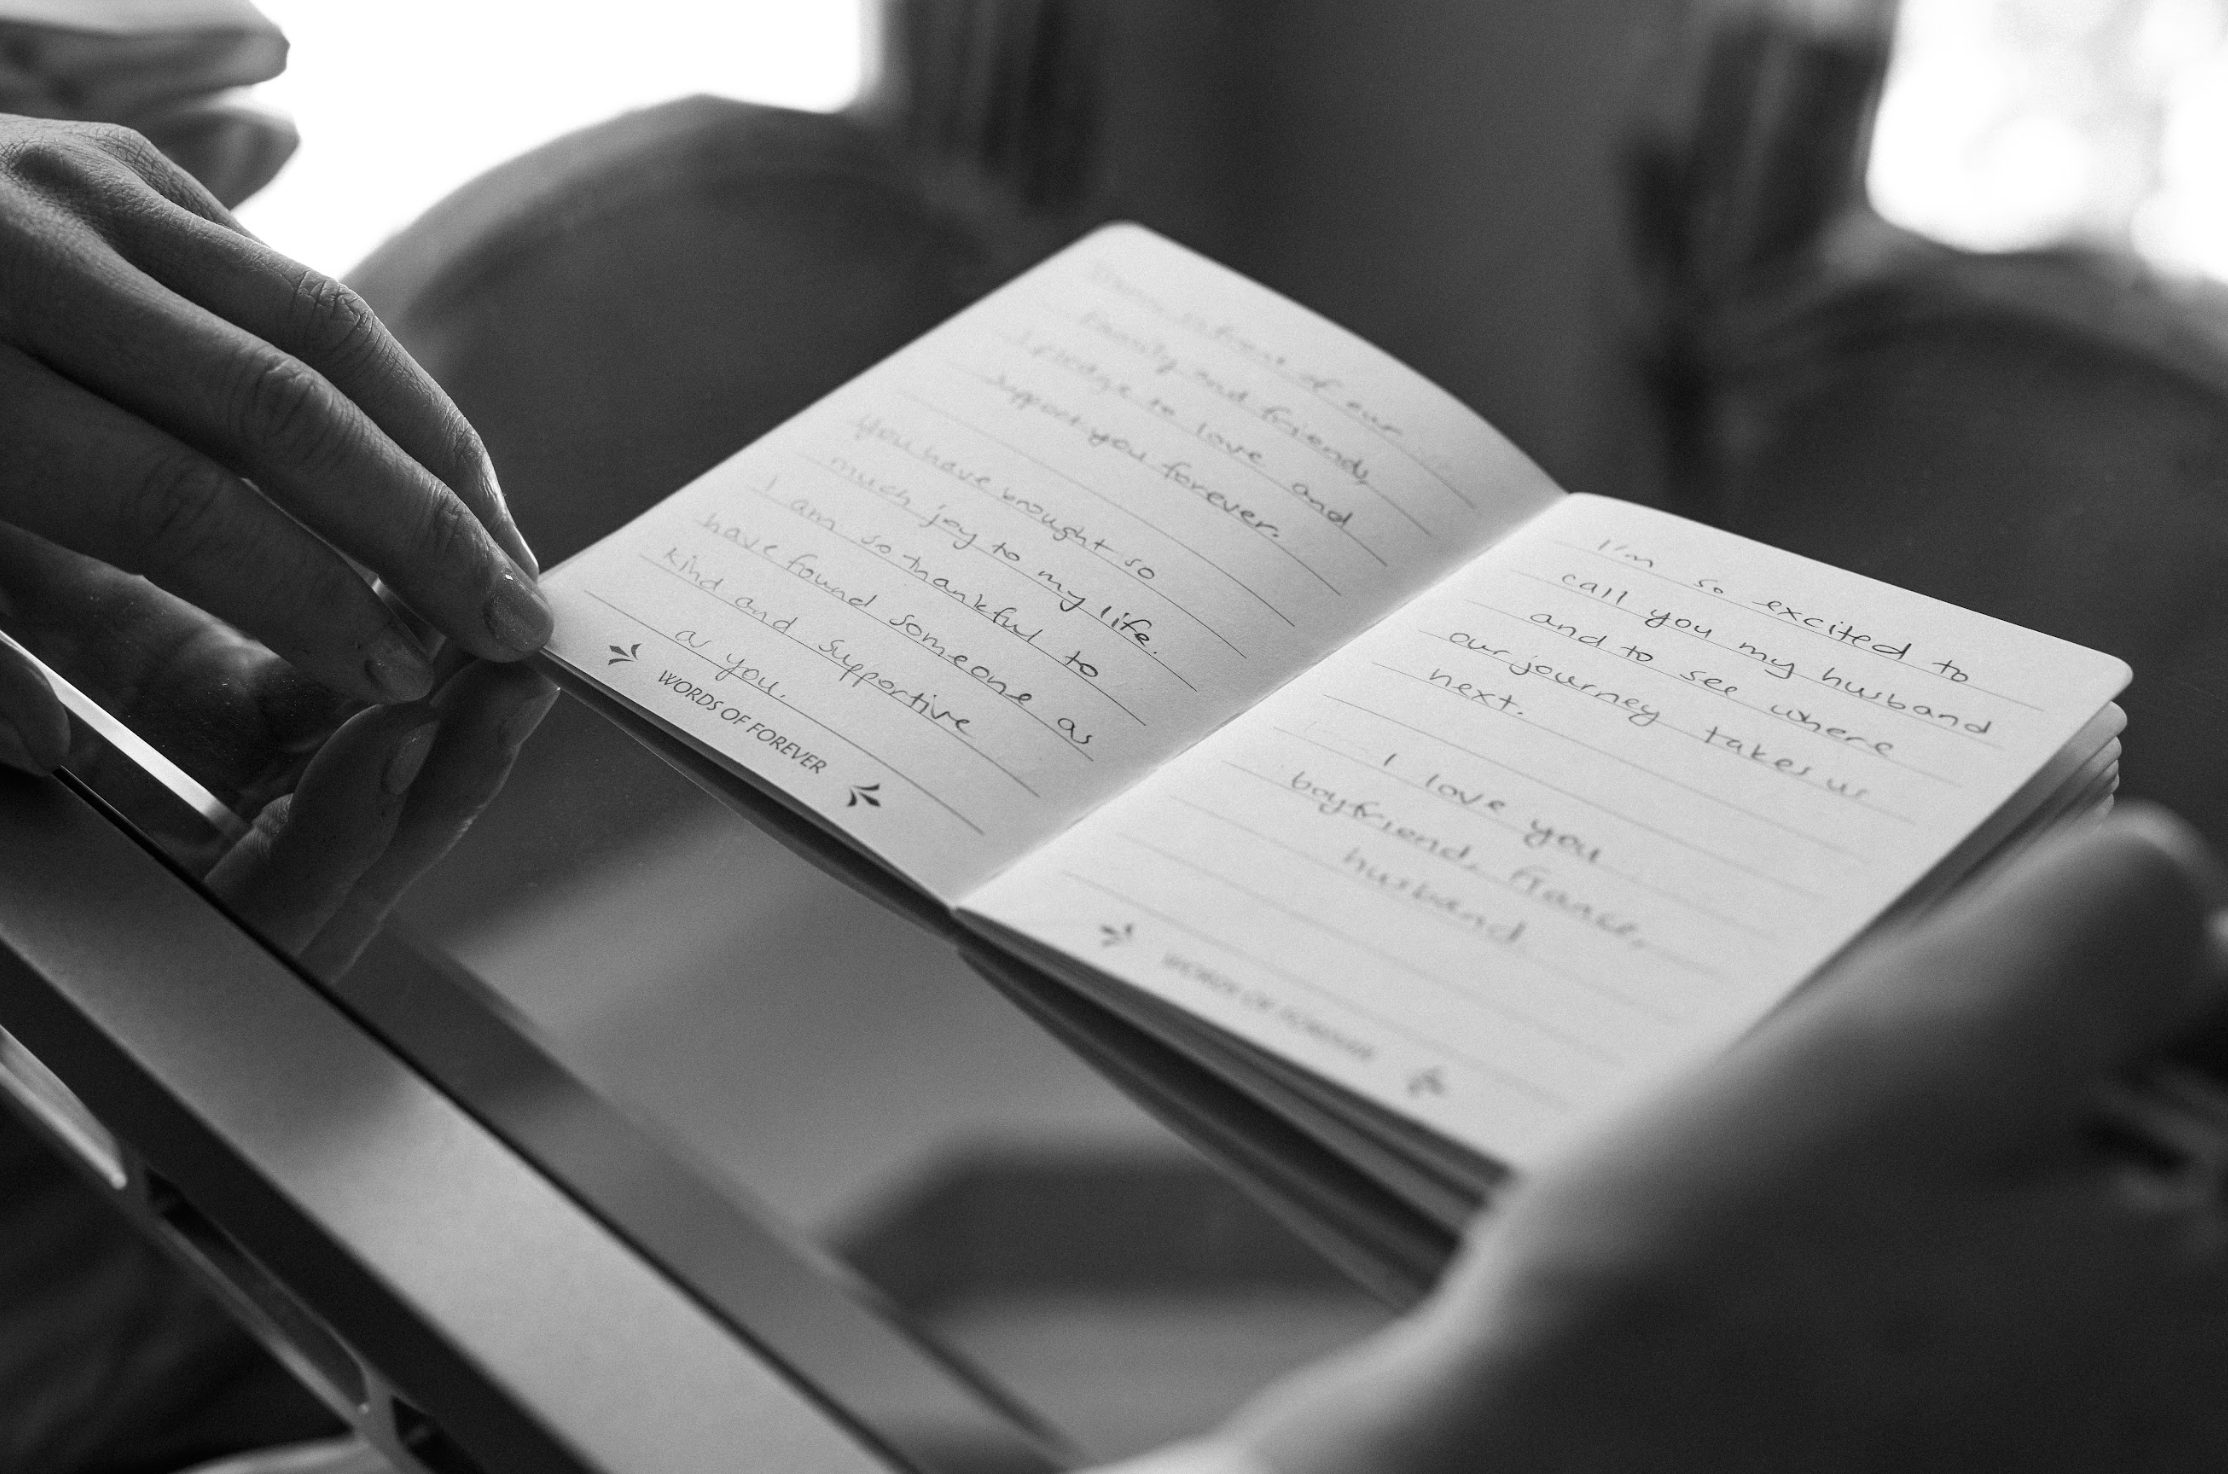 in front of our
family and friends,
I pledge to love and
support you forever.
You have brought so
much joy to my life.
I am so thankful to
have found someone as
kind and supportive
as you.
WORDS OF FOREVER
I'm so excited to
call you my husband
and to see where
our journey takes us
next.
I love you
boyfriend, fiancé,
husband
WORDS OF FOREVER